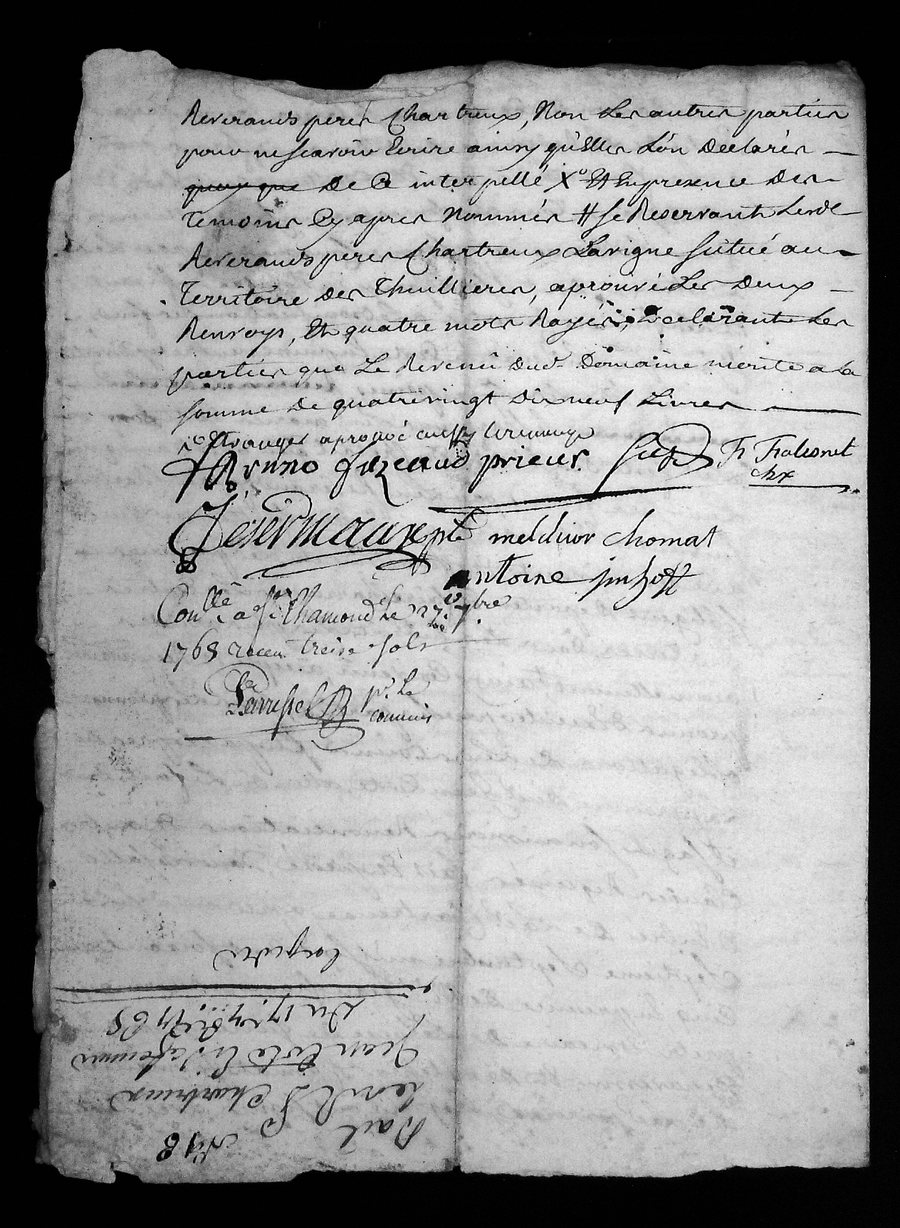 Reverands peres Chartreux, Non Les autres parties
pour ne scavoir Ecrire ainsy qu'Elles L'on Declarés
quoyque De Ce interpellé Xo Et En presence Des
Temoins Cy apres Nommés # se Reservants Lesd
Reverands peres Chartreux La vigne situé au
Territoire Des Thuillieres, aprouvé Les Deux
Renvoys, Et quatre mots Rayés, Declarants Les
parties que Le Revenu Dud Domaine monte a la
somme De quatre vingt Dix neuf Livres
Xo Etranger aprouvé aussy
f Bruno prieur F
chx
ptre melchior chomat
antoine
Conllé a St Chamond Le 27 7bre
1765 receu treise sols
pr Le
commis
No 18
Bail
Les R P Chartreux
Jean
Du 17 7bre 1765